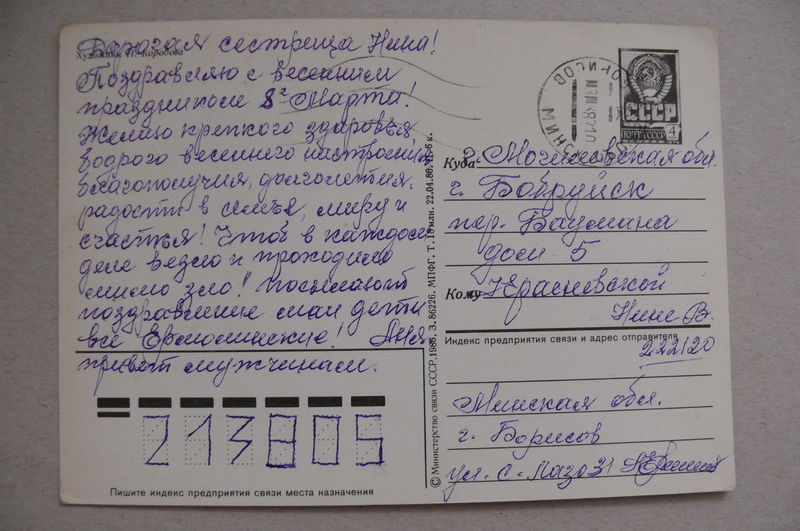 Художник Н. Коробова
Дорогая сестрица Нина!
Поздравляю с весенним
праздником 8е Марта!
Желаю крепкого здоровья
бодрого весеннего настроения
благополучия, долголетия,
радости в семье, миру и
счастья! Чтоб в каждом
деле везло и проходило
мимо зло! Посылают
поздравление мам дети
все Ермолинские! Аня
привет мужчинам.
213805
Пишите индекс предприятия связи места назначения
© Министерство связи СССР, 1986. З. 86226. МПФГ. Т. 18 млн. 22.04.86. VI-6 к.
БОРИСОВ МИНСК
СССР
ПОЧТА СССР 4
Куда г. Могилевская обл.
г. Бобруйск
пер. Баумана
дом 5
Кому Красневской
Нине В.
Индекс предприятия связи и адрес отправителя
222120
Минская обл.
г. Борисов
ул. С. Лазо 31